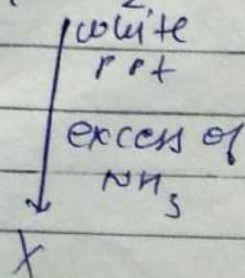 2
white
ppt
excess of
NH3
X